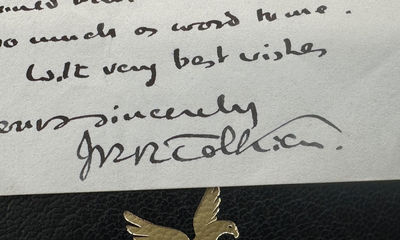 so much as word to me.
With very best wishes
Yours sincerely
JRRTolkien.